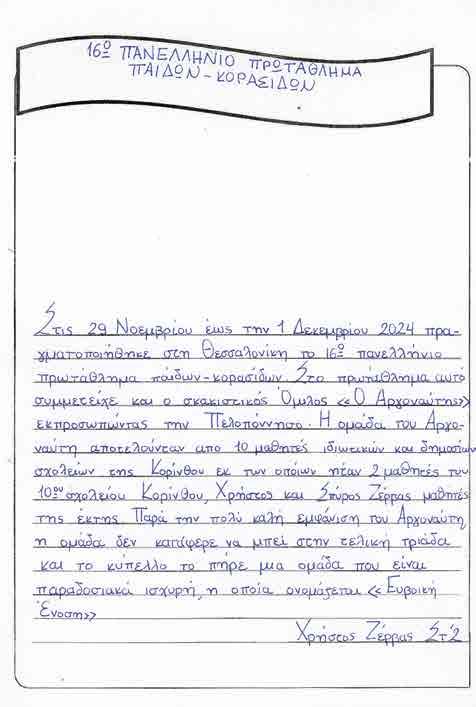 16ο ΠΑΝΕΛΛΗΝΙΟ ΠΡΩΤΑΘΛΗΜΑ
ΠΑΙΔΩΝ-ΚΟΡΑΣΙΔΩΝ
Στις 29 Νοεμβρίου έως την 1 Δεκεμβρίου 2024 πρα-
γματοποιήθηκε στη Θεσσαλονίκη το 16ο πανελλήνιο
πρωτάθλημα παίδων-κορασίδων Στο πρωτάθλημα αυτό
συμμετείχε και ο σκακιστικός Όμιλος «Ο Αργοναύτης»
εκπροσωπώντας την Πελοπόννησο. Η ομάδα του Αργο-
ναύτη αποτελούνταν απο 10 μαθητές ιδιωτικών και δημοσίων
σχολείων της Κορίνθου εκ των οποίων ήταν 2 μαθητές του
10ου σχολείου Κορίνθου, Χρήστος και Σπύρος Ζέρβας μαθητές
της έκτης Παρά την πολύ καλή εμφάνιση του Αργοναύτη
η ομάδα δεν κατάφερε να μπεί στην τελική τριάδα
και το κύπελλο το πήρε μια ομάδα που είναι
παραδοσιακά ισχυρή, η οποία ονομάζεται «Ευβοϊκή
Ένωση»
Χρήστος Ζέρβας Στ2